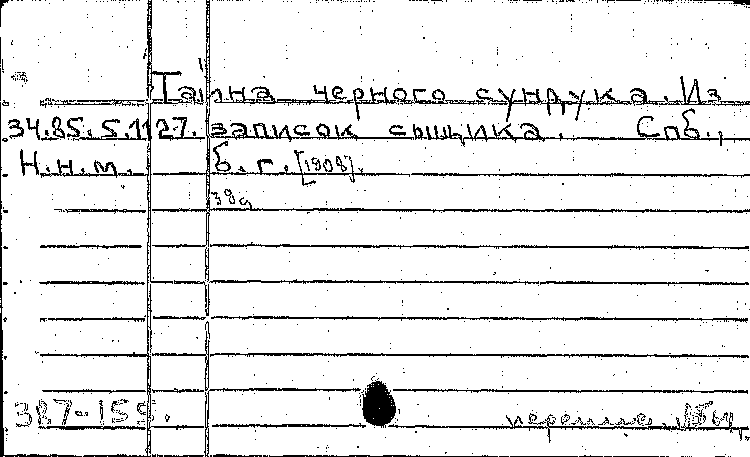 Тайна черного сундука. Из
34.85.5.1127. записок сыщика. Спб.,
Н.н.м. б.г. [1908].
39а
387-155.